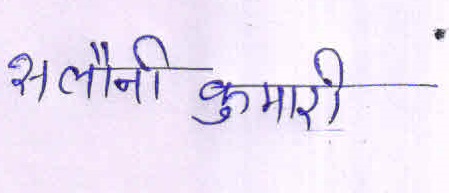 सलौनी कुमारी